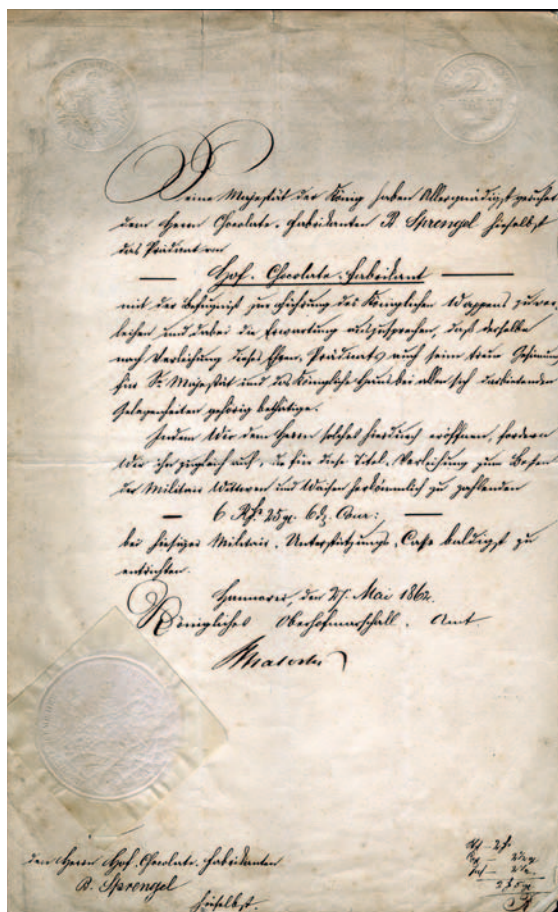 Seine Majestät der König haben Allergnädigst geruhet
dem Herrn Chocolate-Fabrikanten B. Sprengel hieselbst
das Prädicat von
Hof-Chocolate-Fabrikant
mit der Befugniß zur Führung des Königlichen Wappens zu ver-
leihen und dabei die Erwartung auszusprechen, daß derselbe
nach Verleihung dieses Ehren-Prädicats auch seine treue Gesinnung
für Se. Majestät und das Königliche Haus bei allen sich darbietenden
Gelegenheiten gehörig bethätige.
Indem Wir dem Herrn solches hiedurch eröffnen, fordern
Wir ihn zugleich auf, die für diese Titel-Verleihung zum Besten
der Militair Wittwen und Waisen herkömmlich zu zahlenden
6 25 6
bei hiesiger Militair-Unterstützungs-Casse baldigst zu
entrichten.
Hannover, den 27. Mai 1862.
Königliches Oberhofmarschall-Amt.
2
den Herrn Hof-Chocolate-Fabrikanten
B. Sprengel
hieselbst.